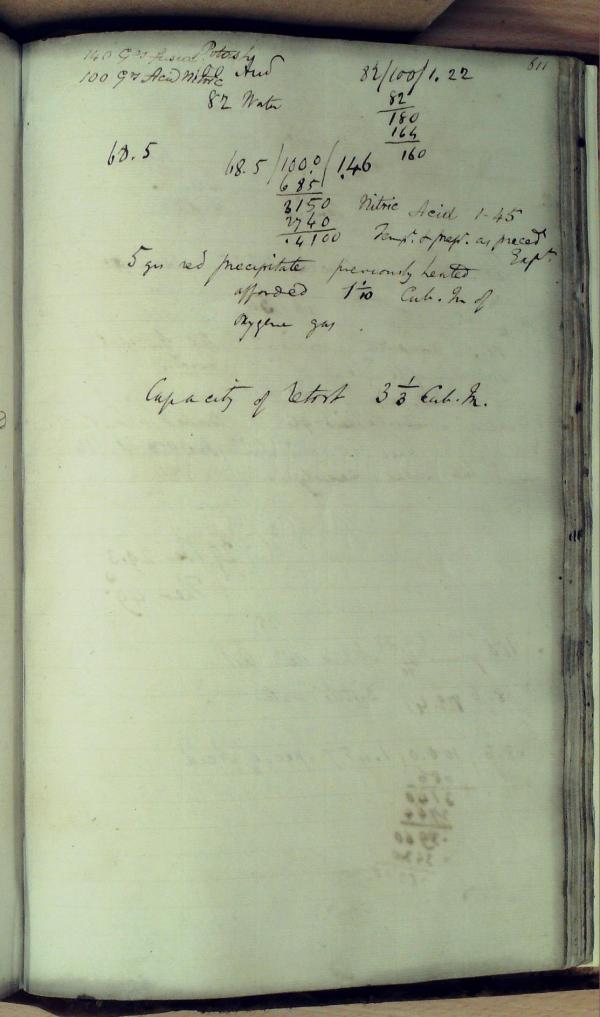 140 Grs fused Potash
100 Gr Acid Nitric Acid
82 Water
82/100/1.22
82
180
164
160
68.5
68.5/100.0/1.46
685
3150
2740
4100
Nitric Acid 1.45
Temp. & press. as preced
Expt.
5 grs red precipitate previously heated
afforded 1 1/10 Cub. In of
oxygene gas.
Capacity of retort 3 1/3 Cub. In.